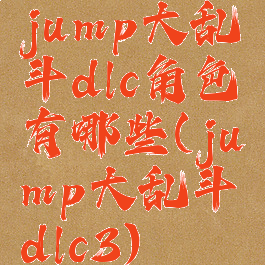 jump大乱
斗dlc角色
有哪些(ju
mp大乱斗
dlc3)